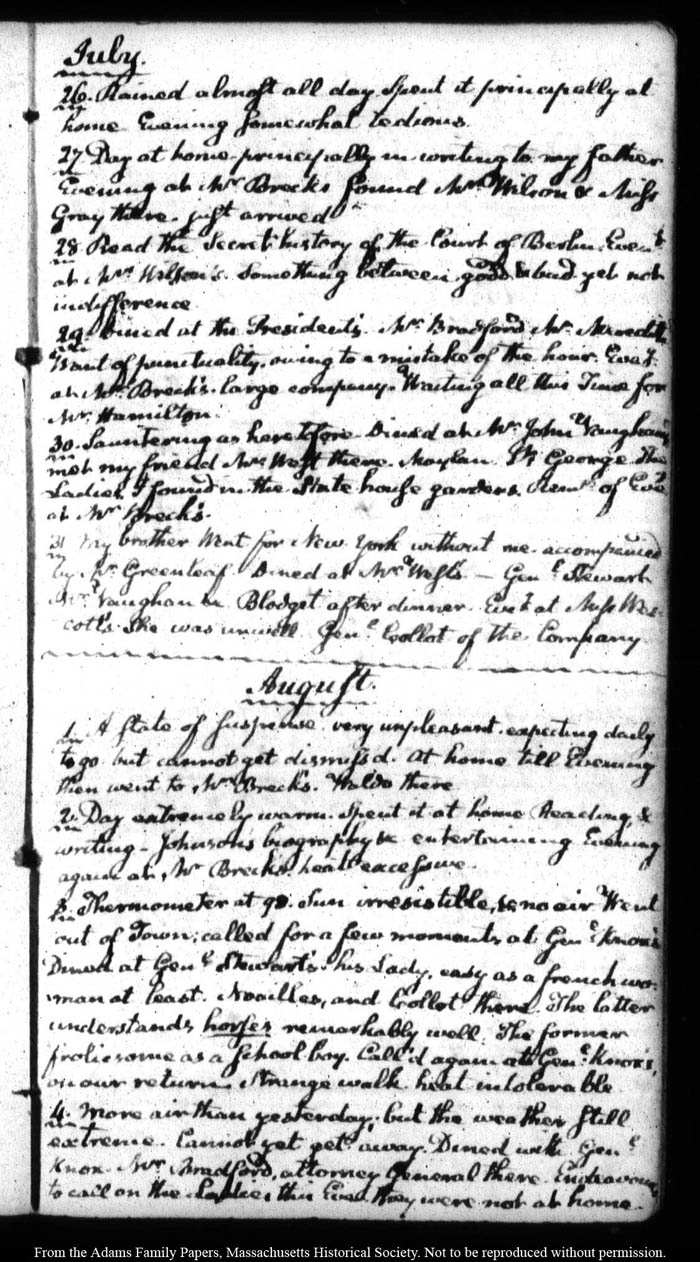 July.
26. Rained almost all day. Spent it principally at
home. Evening somewhat tedious.
27. Day at home principally in writing to my father
Evening at Mr. Breck's found Mrs. Wilson & Miss
Gray there. just arrived
28. Read the Secret history of the Court of Berlin. Eveng.
at Mrs. Wilson's. Something between good & bad, yet not
indifference.
29. Dined at the President's. Mr. Bradford Mr. Meredith
Want of punctuality, owing to a mistake of the hour. Eveg.
at Mr. Breck's. large company. Waiting all this Time for
Mr. Hamilton.
30. Sauntering as heretofore. Dined at Mr. John Vaughan's
met my friend Mr. West there. Moylan. St. George. The
Ladies I found in the State house gardens. Remr. of Eveg
at Mr. Breck's.
31. My brother Went for New York without me. accompanied
by Mr. Greenleaf. Dined at Mr. West's — Genl. Stewart
Mr. Vaughan &c Blodget after dinner. Eveg. at Miss Wes-
cott's. She was unwell. Genl. Collot of the Company.
August.
1. A State of suspense. very unpleasant. expecting daily
to go but cannot get dismiss'd. At home till Evening
then went to Mr. Breck's. Waldo there
2. Day extremely warm. Spent it at home Reading, &
writing – Johnson's biography &c entertaining Evening
again at Mr. Breck's. heat excessive.
3. Thermometer at 90. Sun irresistible, & no air Went
out of Town; called for a few moments at Genl. Knox's
Dined at Genl. Stewart's. his Lady, easy as a french wo-
man at least. Noailles, and Collot there. The latter
understands horses remarkably well. The former
frolicsome as a school-boy. Call'd again at Genl. Knox's,
on our return. Strange walk. heat intolerable.
4. More air than yesterday, but the weather still
extreme. Cannot yet get away. Dined with Genl.
Knox. Mr. Bradford, attorney General there. Endeavoured
to call on the Ladies this Eveg they were not at home.
From the Adams Family Papers, Massachusetts Historical Society. Not to be reproduced without permission.